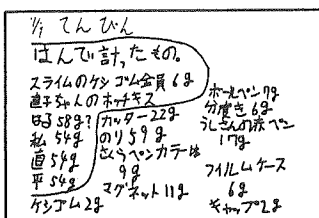 1/1 てんびん
はんで計ったもの。
スライムのケシゴム全員6g
直子ちゃんのホッチキス
はる58g?
私 54g
直 54g
平 54g
ケシゴム2g
カッター22g
のり59g
さくらペンカラーは
9g
マグネット11g
ボールペン7g
分度き6g
うしさんの赤ペン
17g
フィルムケース
6g
キャップ2g